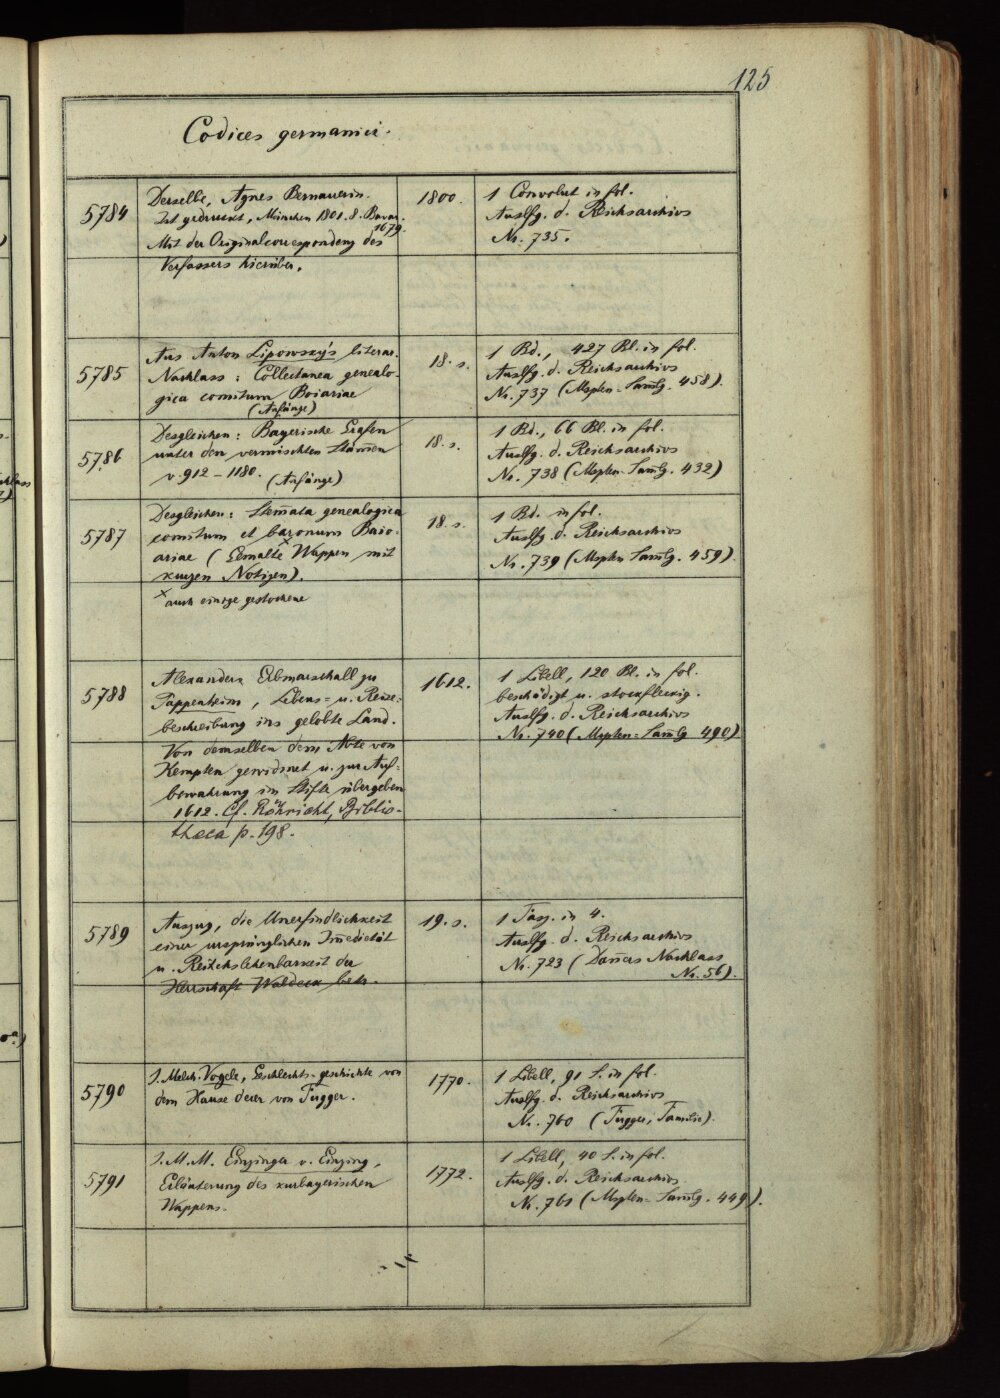 125
Codices germanici.
5784
Derselbe, Agnes Bernauerin.
Ist gedruckt, München 1801. 8. Bavar.
1679.
Mit der Originalcorrespondenz des
Verfassers hierüber.
1800.
1 Convolut in fol.
Auslfg. d. Reichsarchivs
No. 735.
5785
Aus Anton Lipowsky's literar.
Nachlass: Collectanea genealo-
gica comitum Boiariae
(Anfänge)
18. s.
1 Bd., 427 Bl. in fol.
Auslfg. d. Reichsarchivs
No. 737 (Mspten-Samlg. 458).
5786
Desgleichen: Bayerische Grafen
unter den vermischten Stämen
v. 912 - 1180. (Anfänge)
18. s.
1 Bd., 66 Bl. in fol.
Auslfg. d. Reichsarchivs
No. 738 (Mspten-Samlg. 432)
5787
Desgleichen: Stemata genealogica
comitum et baronum Baio-
ariae (Gemalte x Wappen mit
kurzen Notizen).
x auch einige gestochene
18. s.
1 Bd. in fol.
Auslfg. d. Reichsarchivs
No. 739 (Mspten Samlg. 459).
5788
Alexanders Erbmarschall zu
Pappenheim, Lebens- u. Reise-
beschreibung ins gelobte Land.
Von demselben dem Abte von
Kempten gewidmet u. zur Auf-
bewahrung im Stifte übergeben
1612. Cf. Röhricht, Biblio-
theca p. 198.
1612.
1 Libell, 120 Bl. in fol.
beschädigt u. stockfleckig.
Auslfg. d. Reichsarchivs
No. 740 (Mspten-Samlg 490)
5789
Auszug, die Unerfindlichkeit
einer ursprünglichen Imedietät
u. Reichslehenbarkeit der
Herrschaft Waldeck betr.
19. s.
1 Fasz. in 4.
Auslfg. d. Reichsarchivs
No. 723 ( Nachlass
No. 56).
5790
J. Melch. Vogele, Geschlechts-geschichte von
dem Hause derer von Fugger.
1770.
1 Libell, 91 S. in fol.
Auslfg. d. Reichsarchivs
No. 760 (Fugger, Familie).
5791
J. M. M. Einzinger v. Einzing,
Erläuterung des kurbayerischen
Wappens.
1772.
1 Libell, 40 S. in fol.
Auslfg. d. Reichsarchivs
No. 761 (Mspten-Samlg. 449).